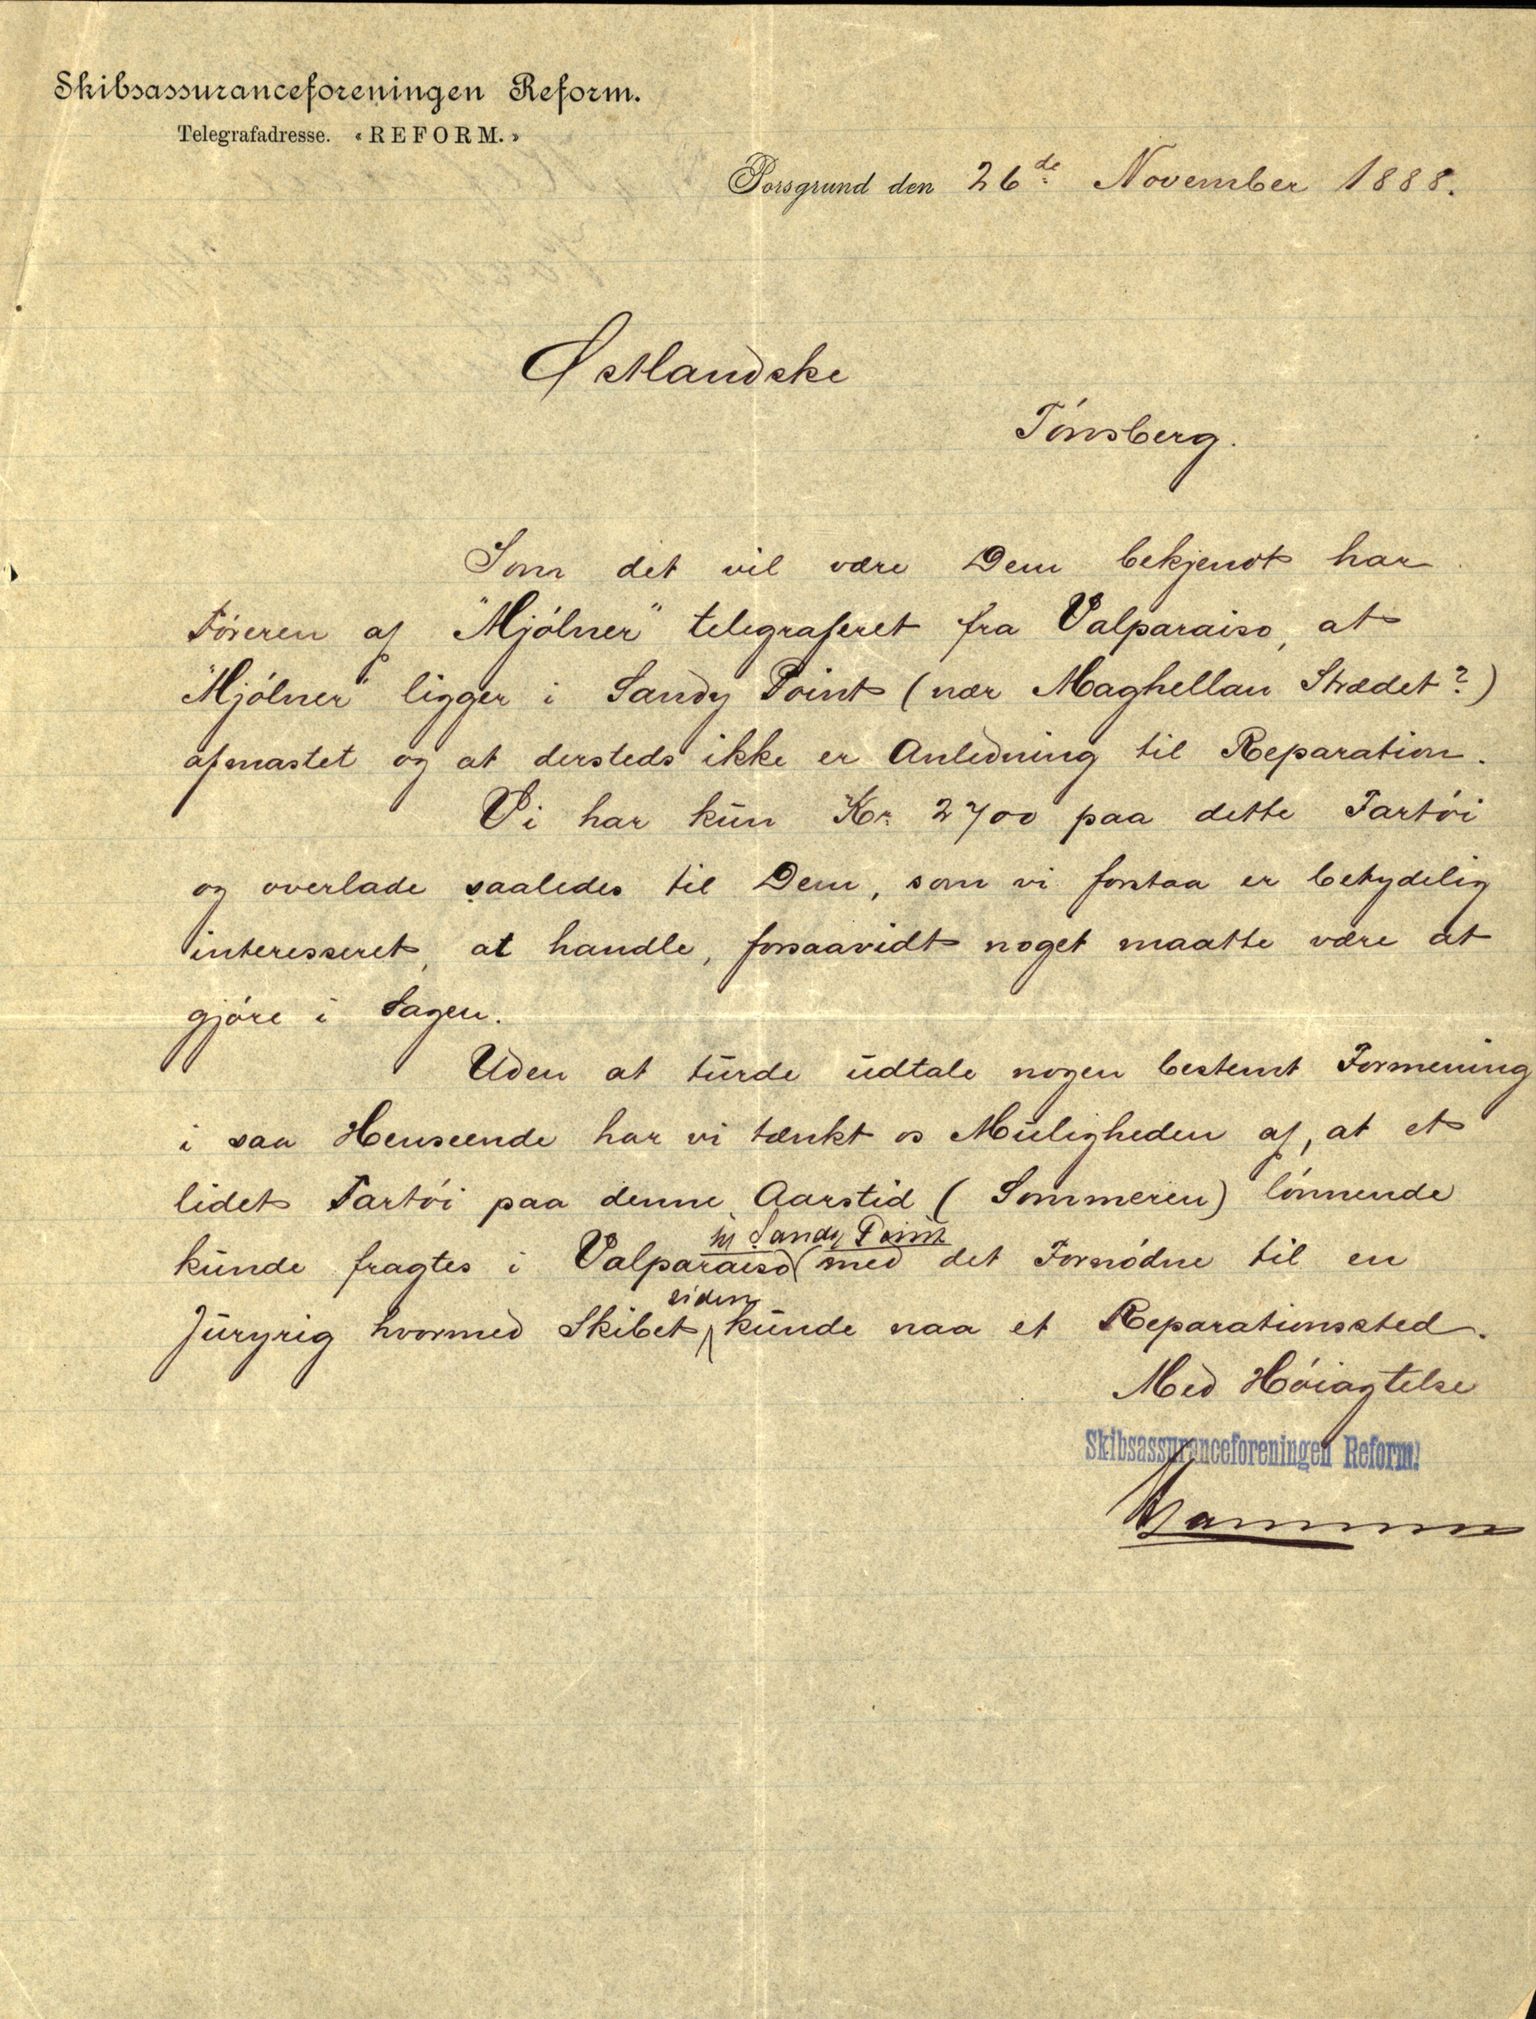 Skibsassuranceforeningen Reform.
Telegrafadresse. «REFORM.»
Porsgrund den 26de November 1888.
Østlandske
Tönsberg.
Som det vil være Dem bekjendt har
Föreren af "Mjölner" telegraferet fra Valparaiso, at
"Mjölner" ligger i Sandy Point (nær Maghellan Strædet?)
afmastet og at dersteds ikke er Anledning til Reparation.
Vi har kun Kr. 2700 paa dette Fartöi
og overlade saaledes til Dem, som vi forstaa er betydelig
interesseret, at handle, forsaavidt noget maatte være at
gjöre i Sagen.
Uden at turde udtale nogen bestemt Formening
i saa Henseende har vi tænkt os Muligheden af, at et
lidet Fartöi paa denne Aarstid (Sommeren) lönnende
til Sandy Point
kunde fragtes i Valparaiso med det Fornödne til en
siden
Juryrig hvormed Skibet kunde naa et Reparationssted.
Med Höiagtelse
Skibsassuranceforeningen Reform!